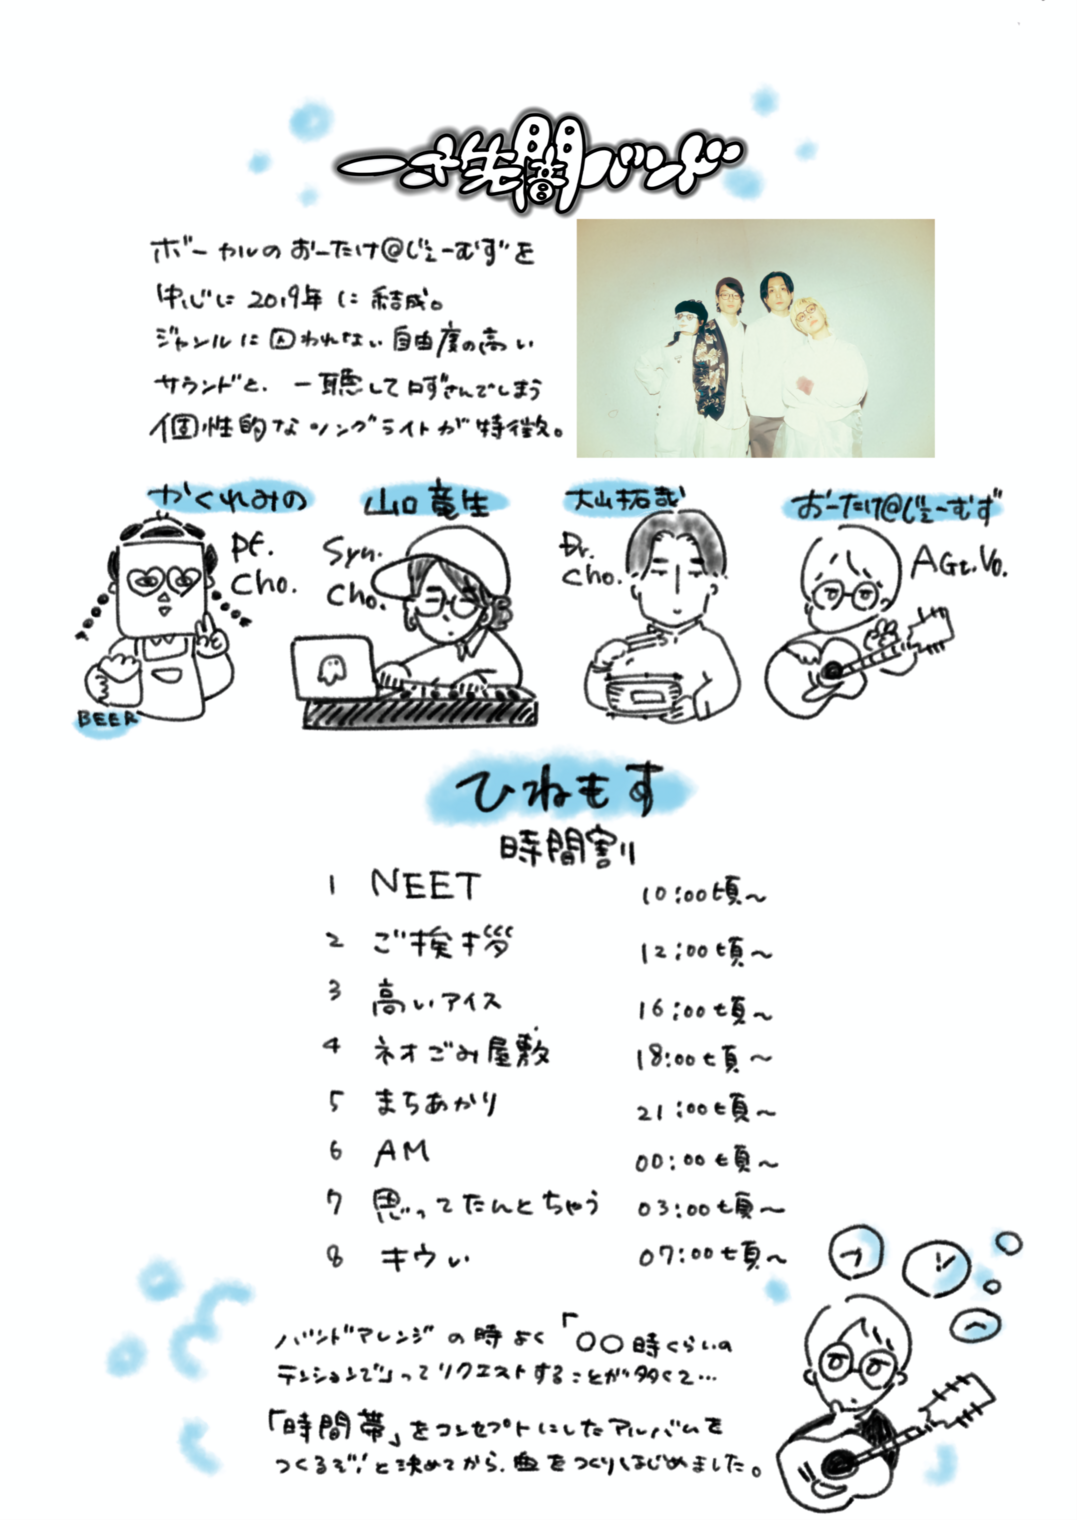 一寸先闇バンド
ボーカルのおーたけ@じぇーむずを
中心に2019年に結成。
ジャンルに囚われない自由度の高い
サウンドと、一聴して口ずさんでしまう
個性的なソングライトが特徴。
かくれみの
Pf.
Cho.
BEER
山口竜生
Syn.
Cho.
大山拓哉
Dr.
Cho.
おーたけ@じぇーむず
AGt.Vo.
ひねもす
時間割り
1 NEET 10:00頃〜
2 ご挨拶 12:00頃〜
3 高いアイス 16:00頃〜
4 ネオごみ屋敷 18:00頃〜
5 まちあかり 21:00頃〜
6 AM 00:00頃〜
7 思ってたんとちゃう 03:00頃〜
8 キウい 07:00頃〜
バンドアレンジの時よく「〇〇時くらいの
テンションで」ってリクエストすることが多くて…
「時間帯」をコンセプトにしたアルバムを
つくるぞ!と決めてから、曲をつくりはじめました。